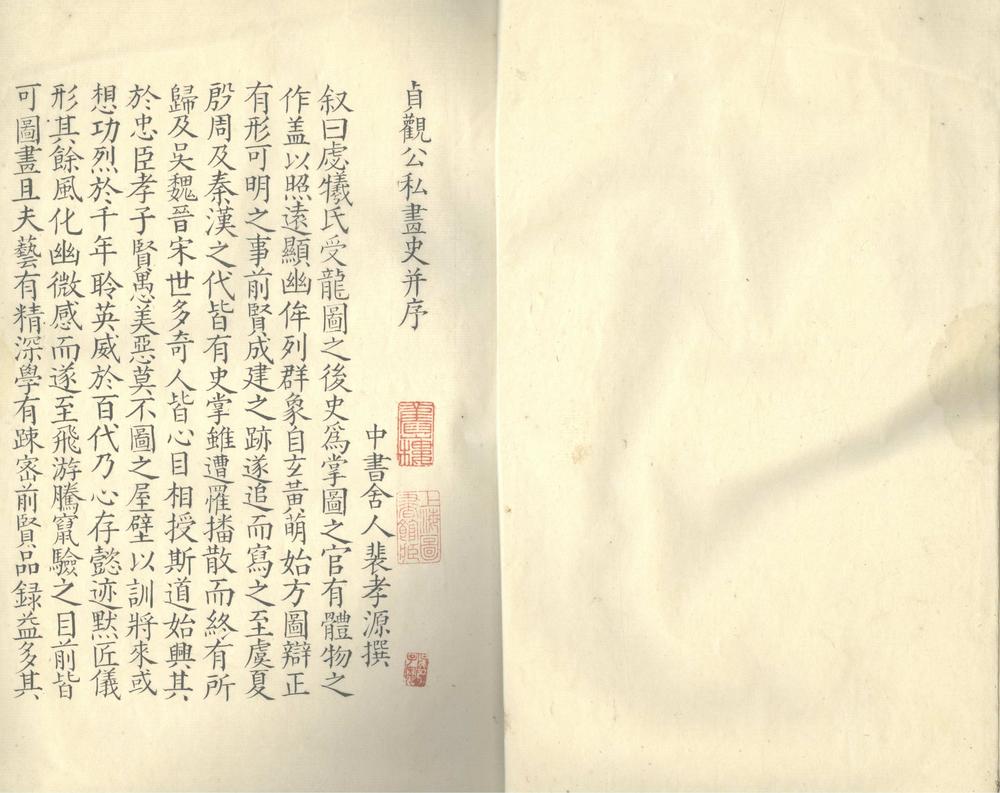 貞觀公私畫史并序
中書舍人裴孝源撰
叙曰虙犧氏受龍圖之後史爲掌圖之官有體物之
作盖以照遠顯幽侔列群象自玄黃萌始方圖辯正
有形可明之事前賢成建之跡遂追而寫之至虞夏
殷周及秦漢之代皆有史掌雖遭罹播散而終有所
歸及吴魏晉宋世多奇人皆心目相授斯道始興其
於忠臣孝子賢愚美惡莫不圖之屋壁以訓將來或
想功烈於千年聆英威於百代乃心存懿迹默匠儀
形其餘風化幽微感而遂至飛游騰竄驗之目前皆
可圖畫且夫藝有精深學有疎密前賢品録益多其
上海圖書館藏